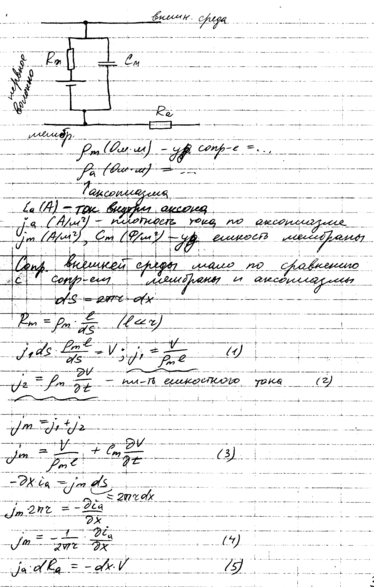 внешн. среда
Rm
Cm
нервное волокно
Ra
мембр.
ρm (Ом·м) – уд сопр-е = ...
ρa (Ом·м) = ...
↑ аксоплазма
ia (A) – ток внутри аксона
ja (A/м²) – плотность тока по аксоплазме
jm (A/м²), Cm (Ф/м²) – уд емкость мембраны
Сопр. внешней среды мало по сравнению
с сопр-ем мембраны и аксоплазмы
dS = 2πr · dx
Rm = ρm · l/dS (l ≪ r)
j₁ dS · ρm l/dS = V ; j₁ = V/ρm l (1)
j₂ = ρm ∂V/∂t – пл-ть емкостного тока (2)
jm = j₁ + j₂
jm = V/ρm l + Cm ∂V/∂t (3)
-∂x ia = jm dS
= 2πr dx
jm · 2πr = -∂ia/∂x
jm = -1/2πr · ∂ia/∂x (4)
ja · dRa = -dx · V (5)